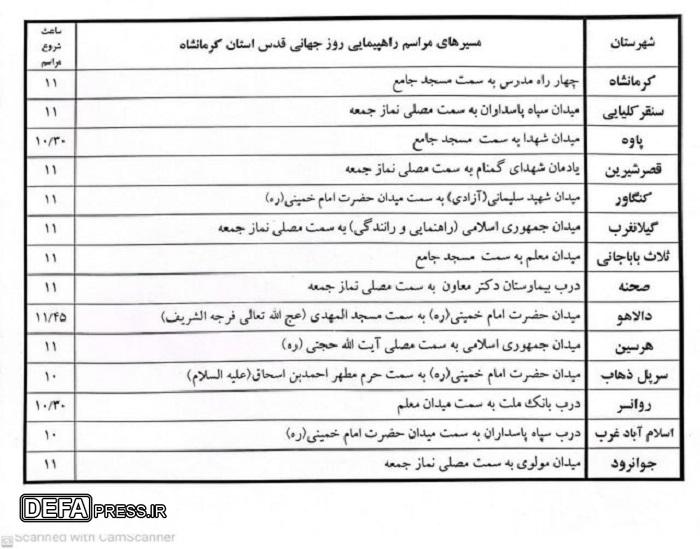 شهرستان مسیرهای مراسم راهپیمایی روز جهانی قدس استان کرمانشاه ساعت شروع مراسم
کرمانشاه چهار راه مدرس به سمت مسجد جامع ۱۱
سنقر کلیایی میدان سپاه پاسداران به سمت مصلی نماز جمعه ۱۱
پاوه میدان شهدا به سمت مسجد جامع ۱۰/۳۰
قصرشیرین یادمان شهدای گمنام به سمت مصلی نماز جمعه ۱۱
کنگاور میدان شهید سلیمانی(آزادی) به سمت میدان حضرت امام خمینی(ره) ۱۱
گیلانغرب میدان جمهوری اسلامی (راهنمایی و رانندگی) به سمت مصلی نماز جمعه ۱۱
ثلاث باباجانی میدان معلم به سمت مسجد جامع ۱۱
صحنه درب بیماوستان دکتر معاون به سمت مصلی نماز جمعه ۱۱
دالاهو میدان حضرت امام خمینی(ره) به سمت مسجد المهدی (عج الله تعالی فرجه الشریف) ۱۱/۴۵
هرسین میدان جمهوری اسلامی به سمت مصلی آیت الله حجتی (ره) ۱۱
سرپل ذهاب میدان حضرت امام خمینی(ره) به سمت حرم مطهر احمدبن اسحاق(علیه السلام) ۱۰
روانسر درب بانک ملت به سمت میدان معلم ۱۰/۳۰
اسلام آباد غرب درب سپاه پاسداران به سمت میدان حضرت امام خمینی(ره) ۱۰
جوانرود میدان مولوی به سمت مصلی نماز جمعه ۱۱
DEFAPRESS.IR
Scanned with CamScanner